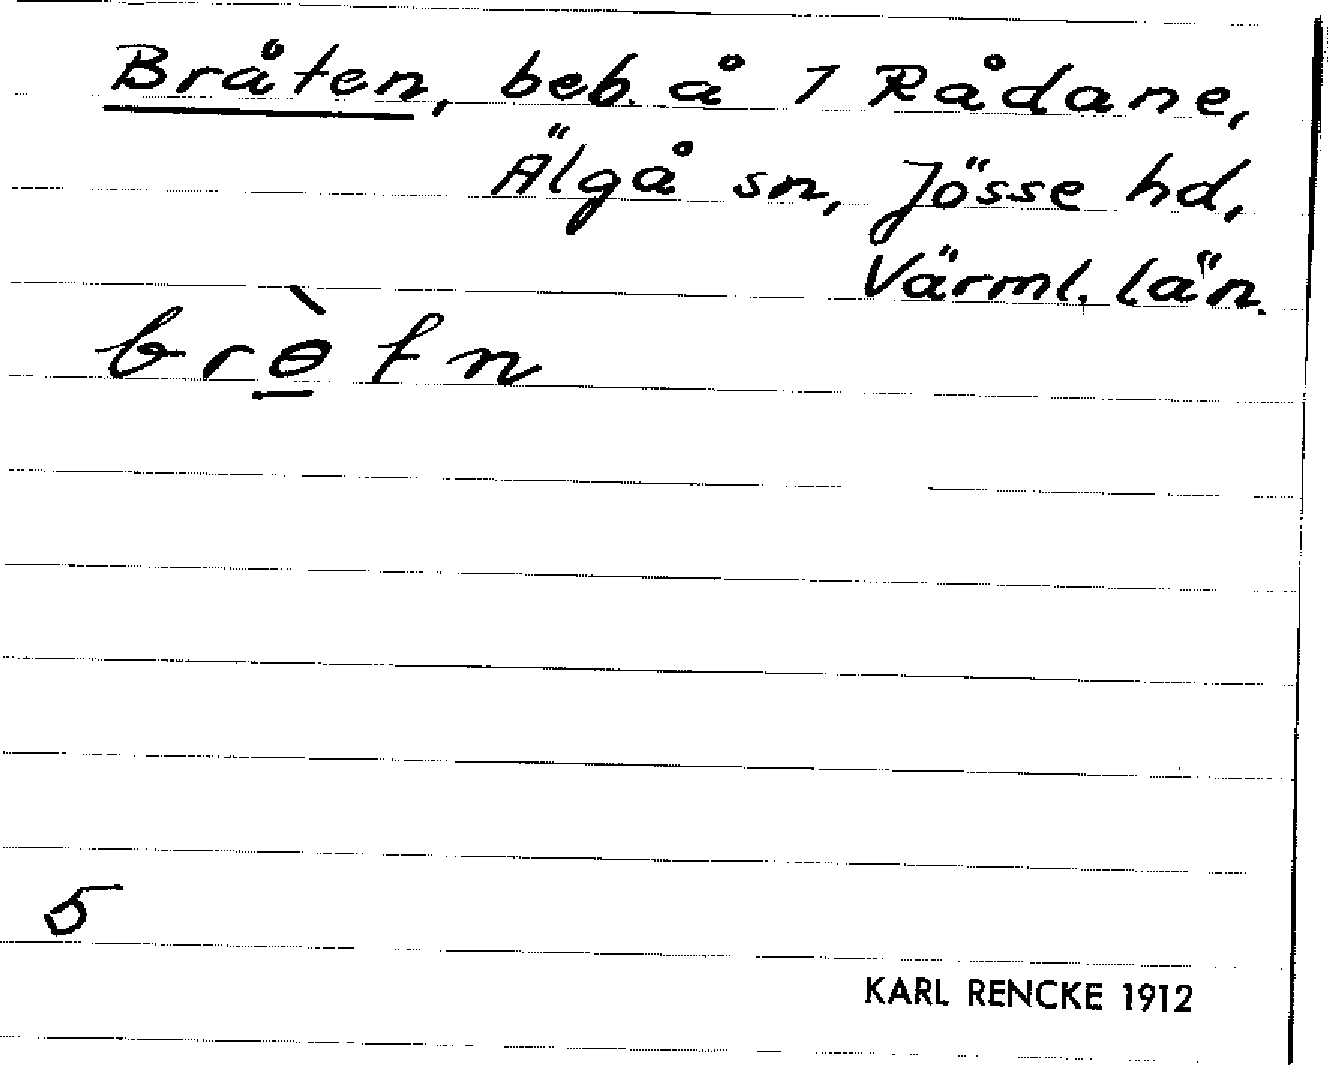 Bråten, beb. å 1 Rådane,
Älgå sn, Jösse hd,
Värml. län.
brɵ̠̀tn
5
KARL RENCKE 1912